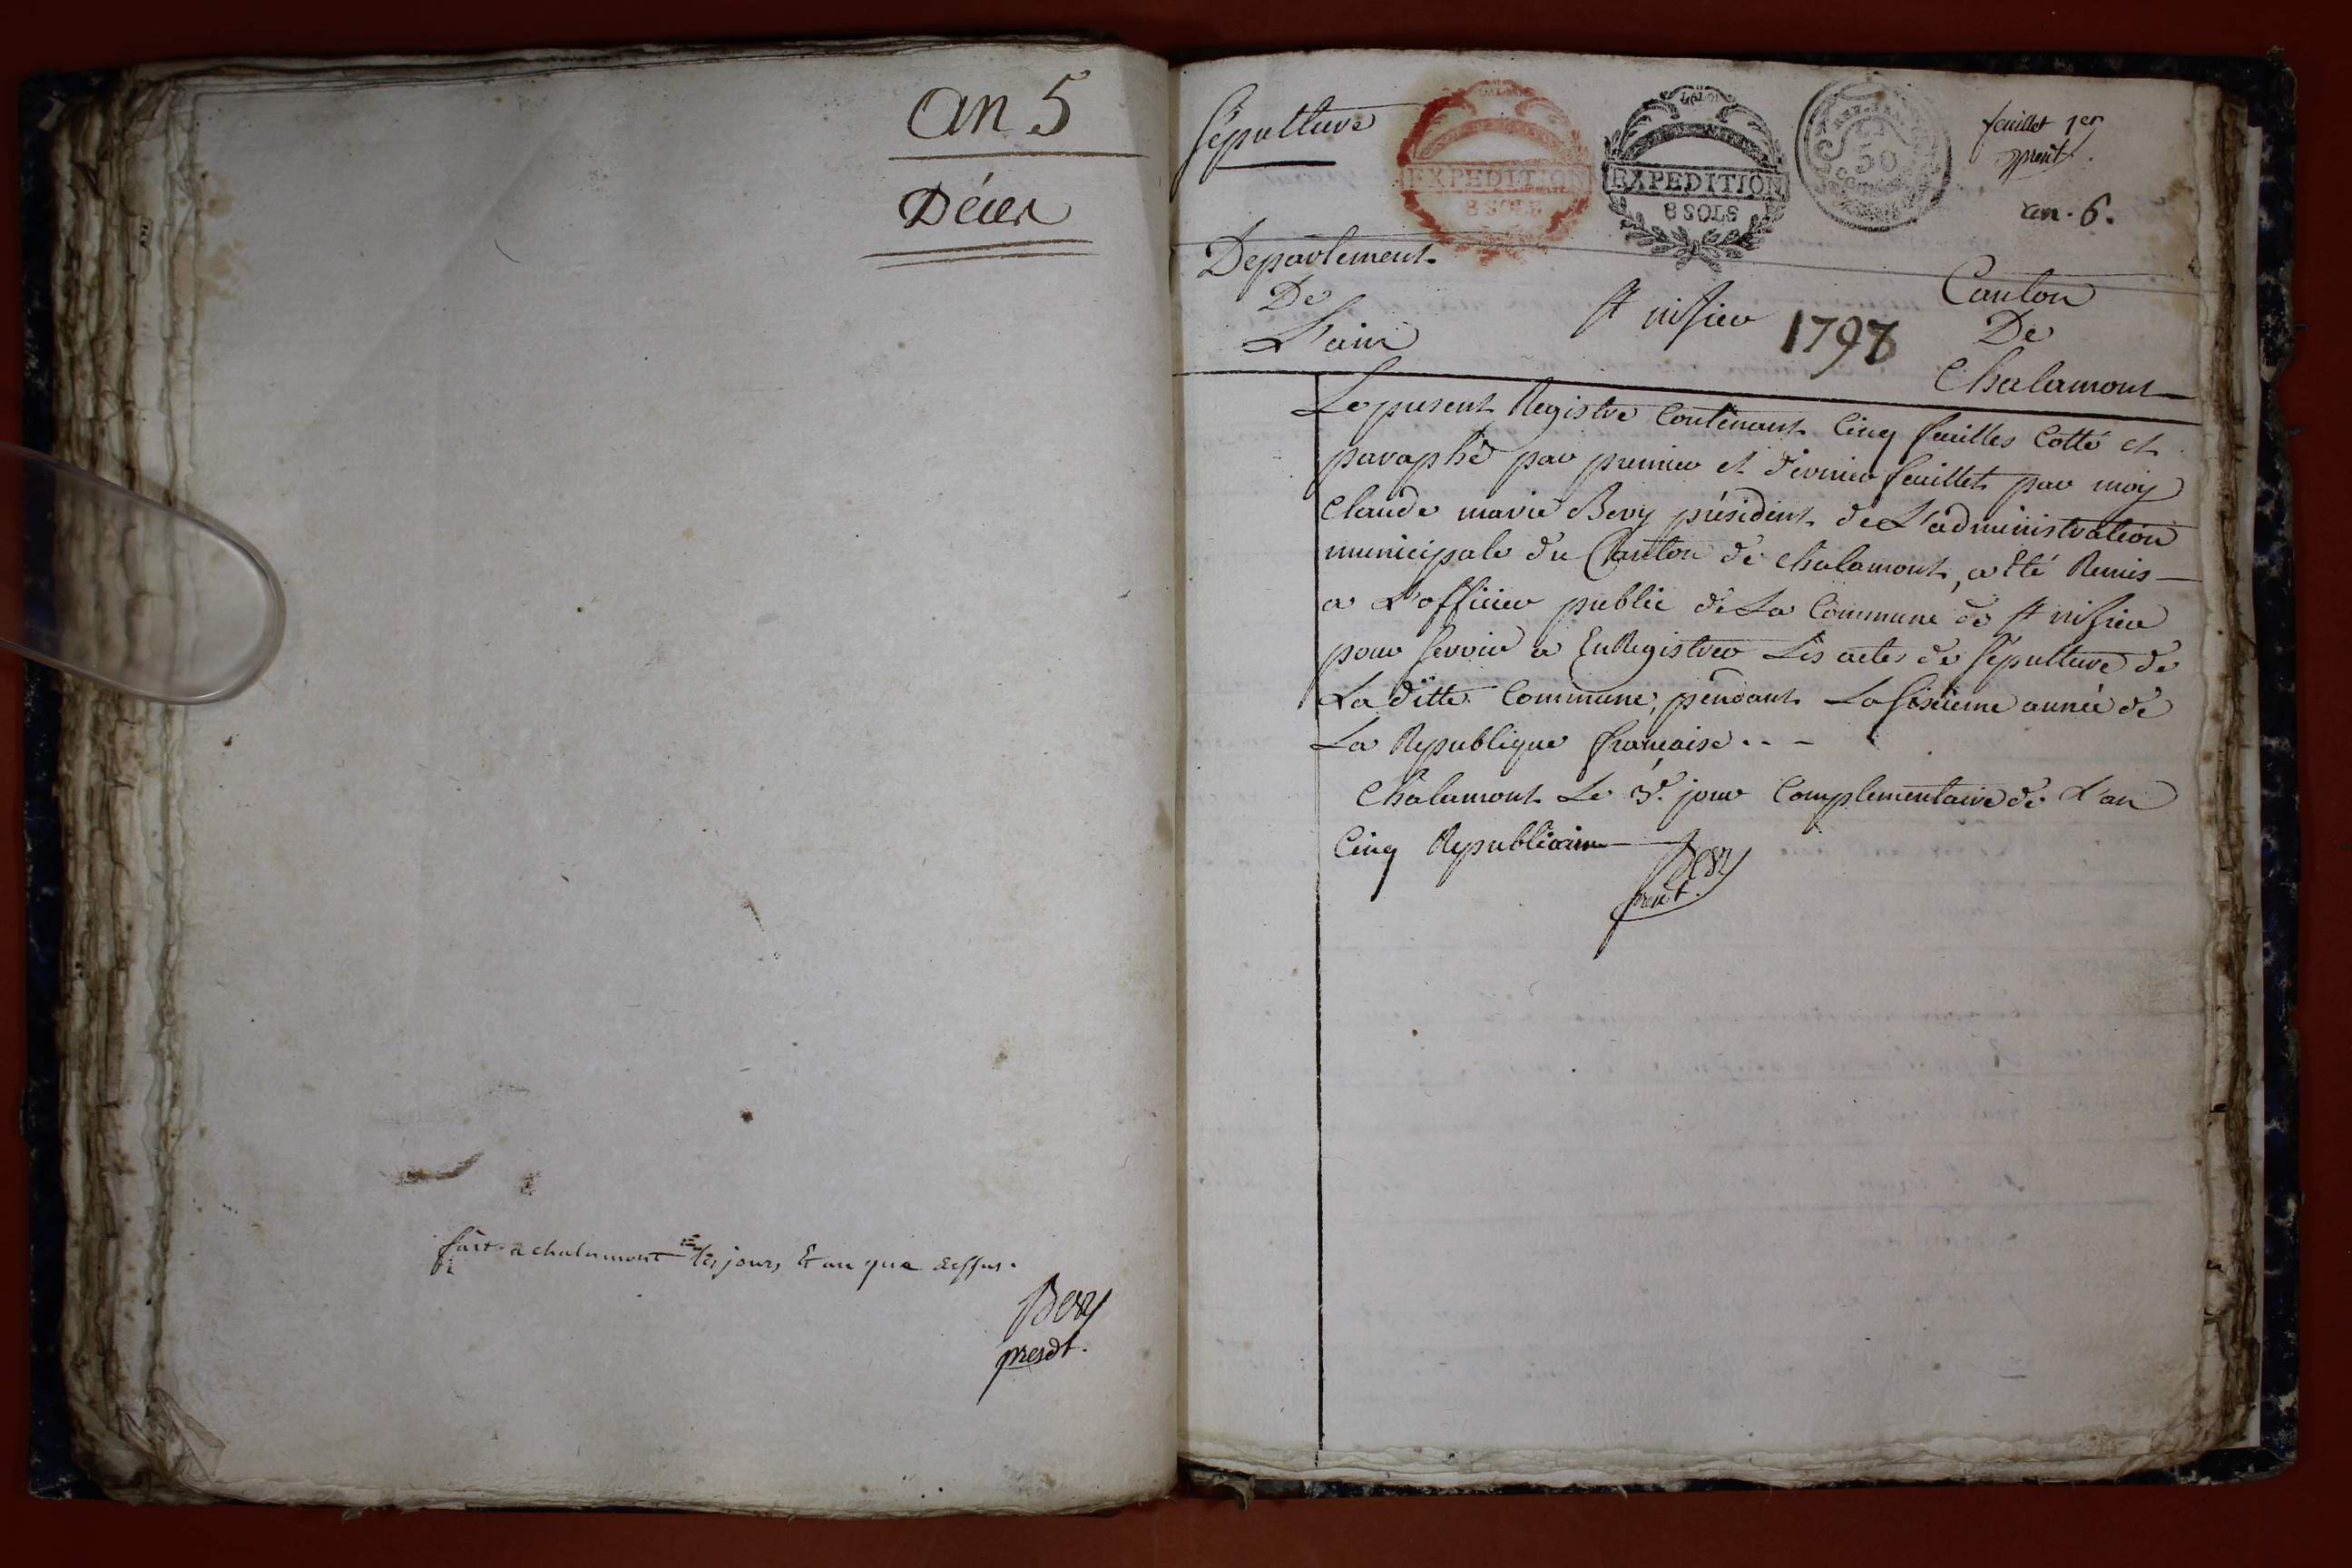 an 5
Décès
fait a chalamont les jours & an que dessus.
Bery
presdt.
Sépulture
LA LOI
EXPEDITION
8 SOLS
LA LOI
EXPEDITION
8 SOLS
50
feuillet 1er
presdt.
an. 6.
Departement
De
L'ain
st nisier
1798
Canton
De
Chalamont
Le present Registre Contenant Cinq feuilles Cotté et
paraphé par premier et dernier feuillet par moy
Claude marie Bery président de L'administration
municipale du Canton de Chalamont, a Eté Remis
a L'officier public de La Commune de st nisier
pour servir a EnRegistrer Les actes de sépulture de
La ditte Commune, pendant La sixième année de
La Republique française . . -
Chalamont Le 3e. jour Complementaire de L'an
Cinq Republicain
Bery
presdt.